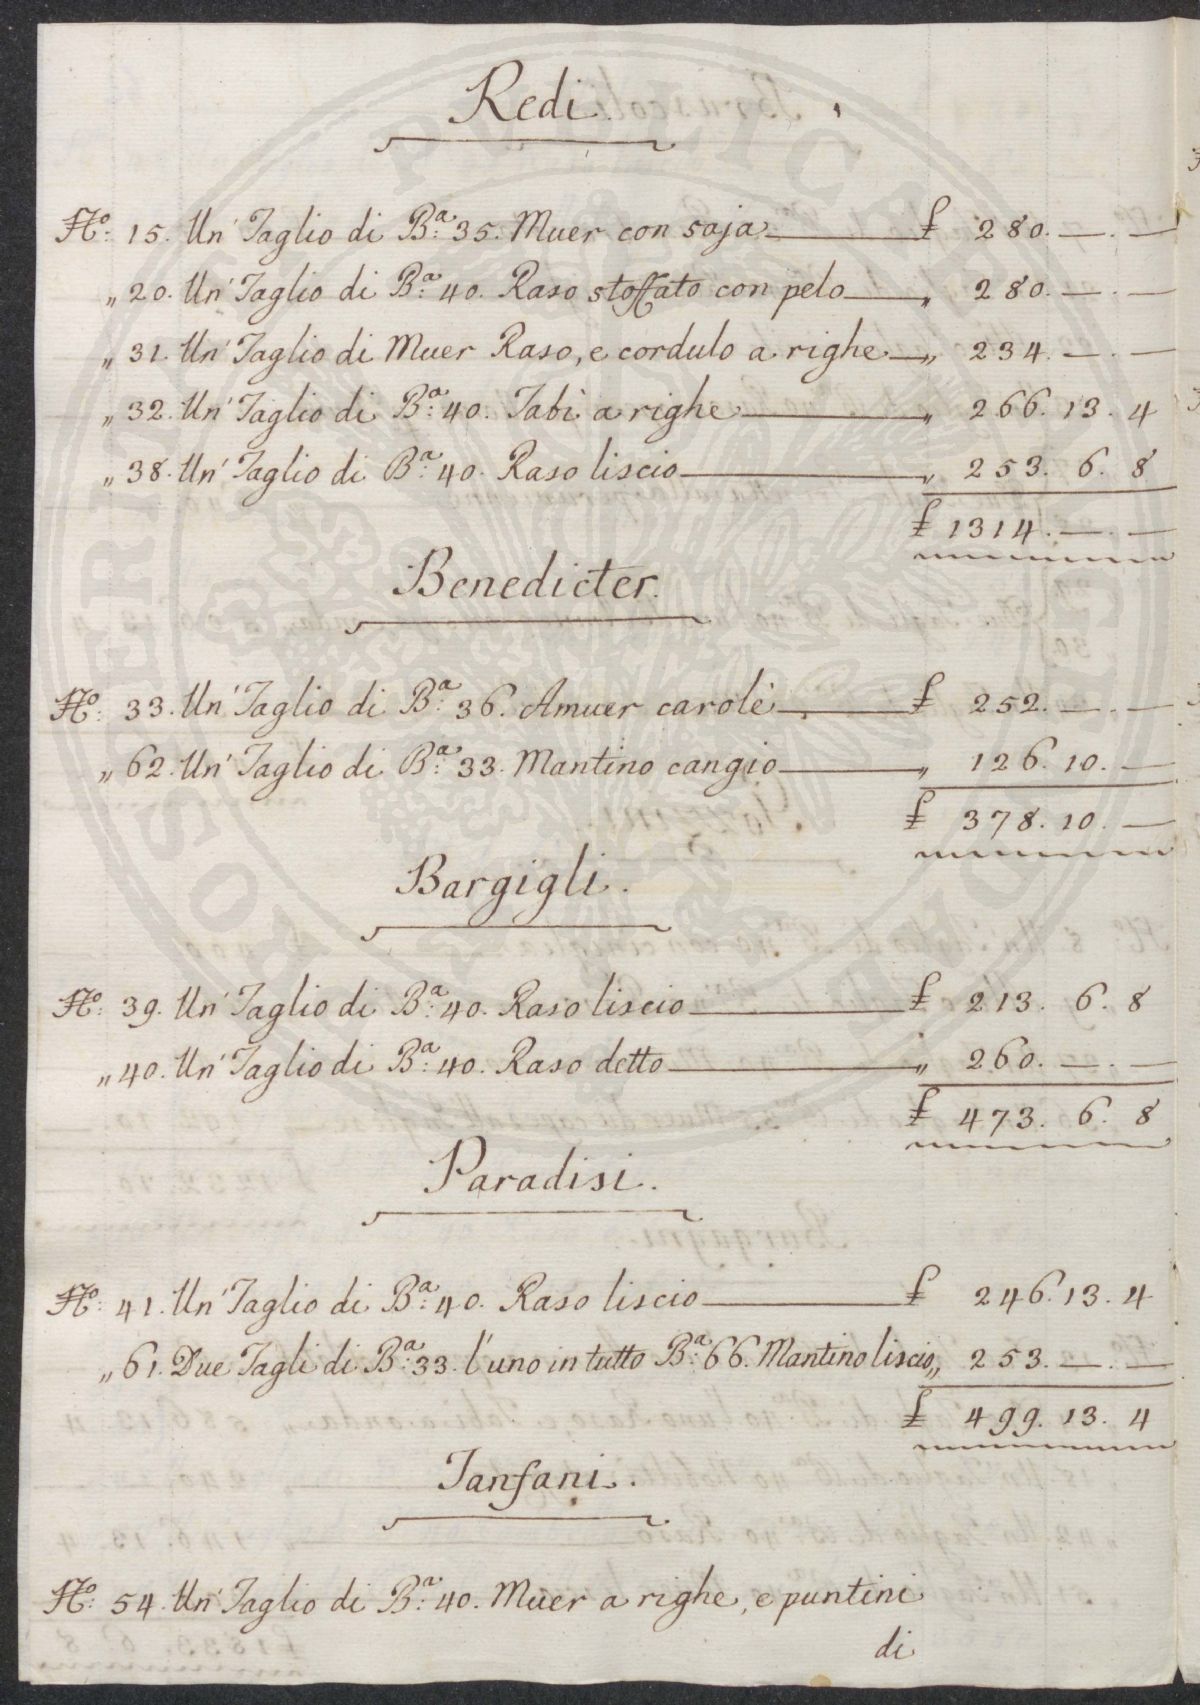 Redi.
N.º 15. Un' Taglio di B.ª 35. Muer con saja £ 280. — . —
„ 20. Un' Taglio di B.ª 40. Raso stoffato con pelo „ 280. — . —
„ 31. Un' Taglio di Muer Raso, e cordulo a righe „ 234. — . —
„ 32. Un' Taglio di B.ª 40. Tabì a righe „ 266. 13. 4
„ 38. Un' Taglio di B.ª 40. Raso liscio „ 253. 6. 8
£ 1314. — . —
Benedicter.
N.º 33. Un' Taglio di B.ª 36. Amuer carolè £ 252. — . —
„ 62. Un' Taglio di B.ª 33. Mantino cangio „ 126. 10. —
£ 378. 10. —
Bargigli.
N.º 39. Un' Taglio di B.ª 40. Raso liscio £ 213. 6. 8
„ 40. Un' Taglio di B.ª 40. Raso detto „ 260. — . —
£ 473. 6. 8
Paradisi.
N.º 41. Un' Taglio di B.ª 40. Raso liscio £ 246. 13. 4
„ 61. Due Tagli di B.ª 33. l'uno in tutto B.ª 66. Mantino liscio „ 253. — . —
£ 499. 13. 4
Tanfani.
N.º 54. Un' Taglio di B.ª 40. Muer a righe, e puntini
di